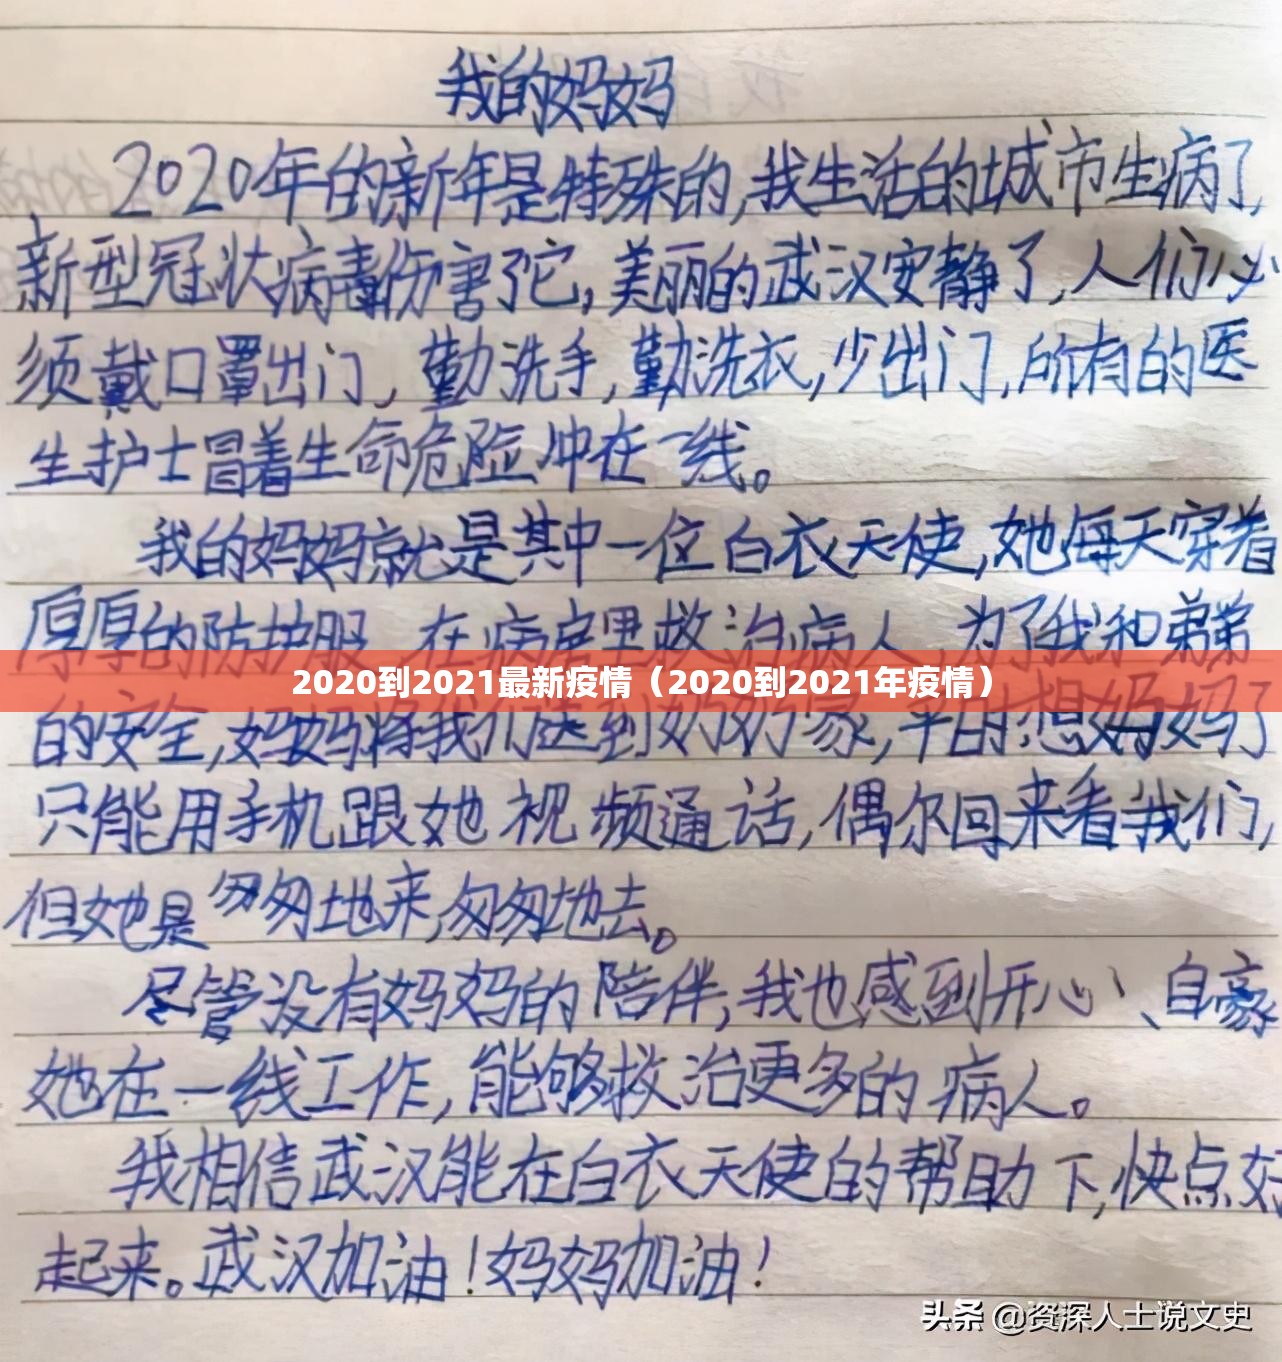 我的妈妈
2020年的新年是特殊的,我生活的城市生病了,
新型冠状病毒伤害了它,美丽的武汉安静了,人们必
须戴口罩出门,勤洗手,勤洗衣,少出门,所有的医
生护士冒着生命危险冲在一线。
我的妈妈就是其中一位白衣天使,她每天穿着
厚厚的防护服 在病房里救治病人 为了我和弟弟
2020到2021最新疫情（2020到2021年疫情）
的安全,妈妈将我们送到奶奶家,平时想妈妈了
只能用手机跟她视频通话,偶尔回来看我们,
但她是匆匆地来,匆匆地去。
尽管没有妈妈的陪伴,我也感到开心、自豪
她在一线工作,能够救治更多的病人。
我相信武汉能在白衣天使的帮助下,快点好
起来。武汉加油!妈妈加油!
头条 @资深人士说文史